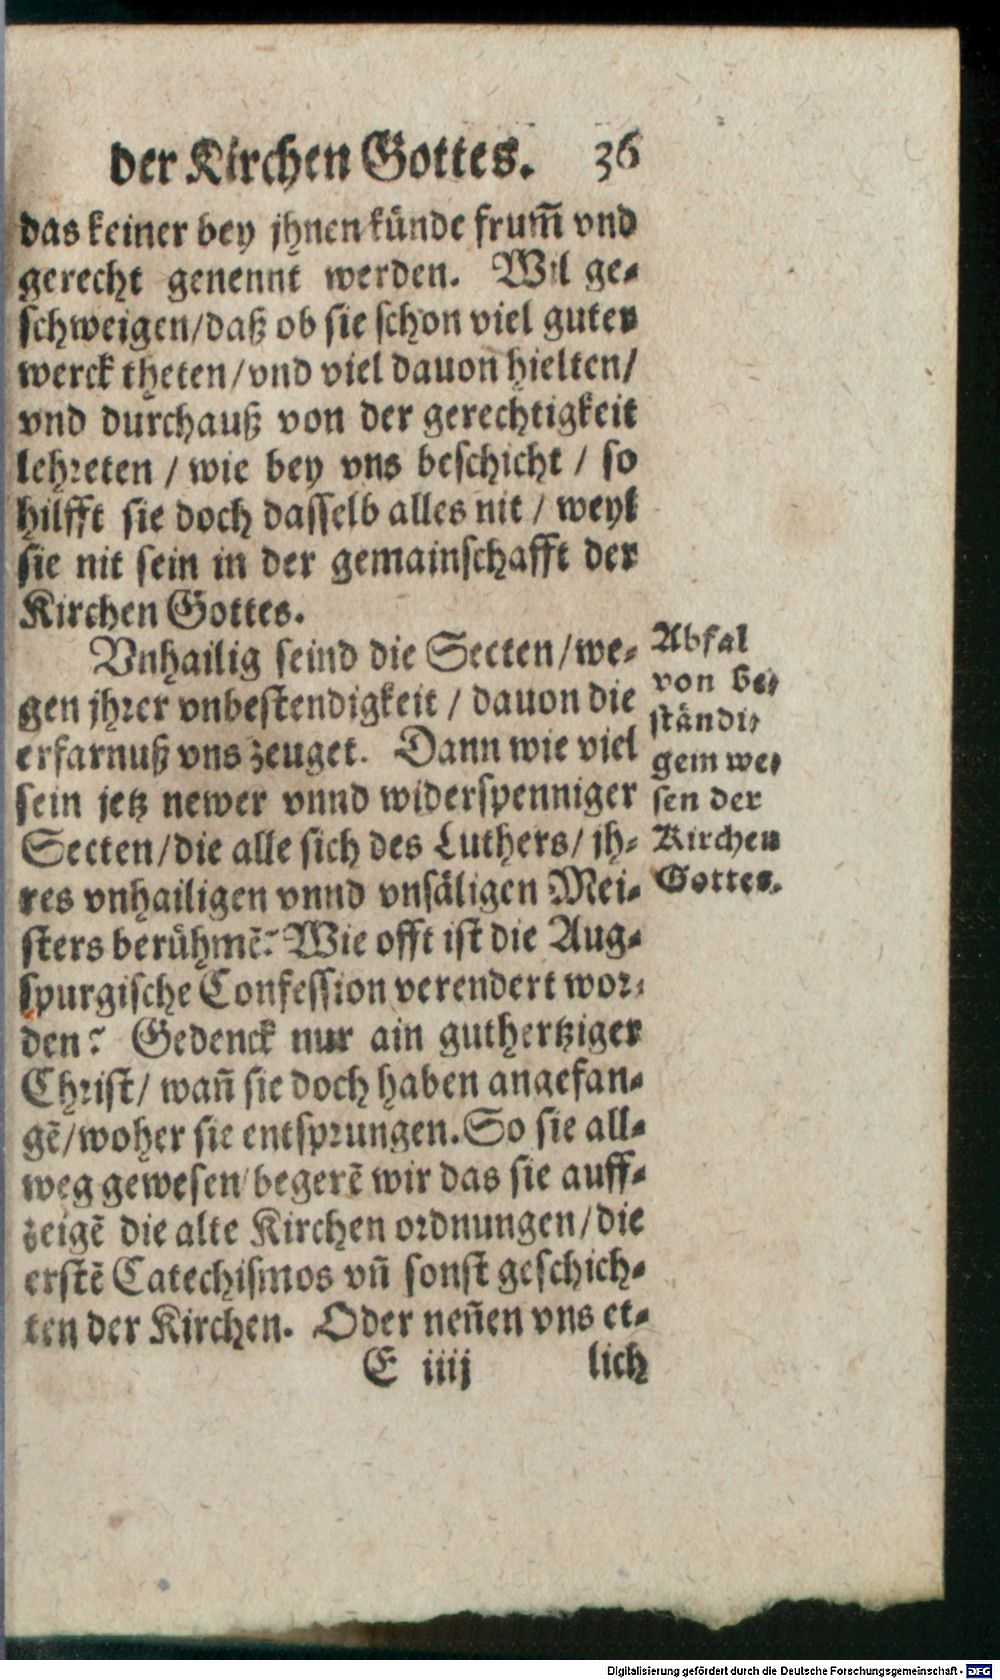 der Kirchen Gottes. 36
das keiner bey jhnen künde frum̃ vnd
gerecht genennt werden. Wil ge-
schweigen/daß ob sie schon viel guter
werck theten/vnd viel dauon hielten/
vnd durchauß von der gerechtigkeit
lehreten / wie bey vns beschicht / so
hilfft sie doch dasselb alles nit / weyl
sie nit sein in der gemainschafft der
Kirchen Gottes.
Vnhailig seind die Secten/we-
gen jhrer vnbestendigkeit / dauon die
erfarnuß vns zeuget. Dann wie viel
sein jetz newer vnnd widerspenniger
Secten/die alle sich des Luthers/ jh-
res vnhailigen vnnd vnsäligen Mei-
sters berühmẽ? Wie offt ist die Aug-
spurgische Confession verendert wor-
den? Gedenck nur ain guthertziger
Christ/ wañ sie doch haben angefan-
gẽ/woher sie entsprungen. So sie all-
weg gewesen/begerẽ wir das sie auff-
zeigẽ die alte Kirchen ordnungen/die
erstẽ Catechismos vñ sonst geschich-
ten der Kirchen. Oder neñen vns et-
E iiij lich
Abfal
von be-
ständi-
gem we-
sen der
Kirchen
Gottes.
Digitalisierung gefördert durch die Deutsche Forschungsgemeinschaft - DFG